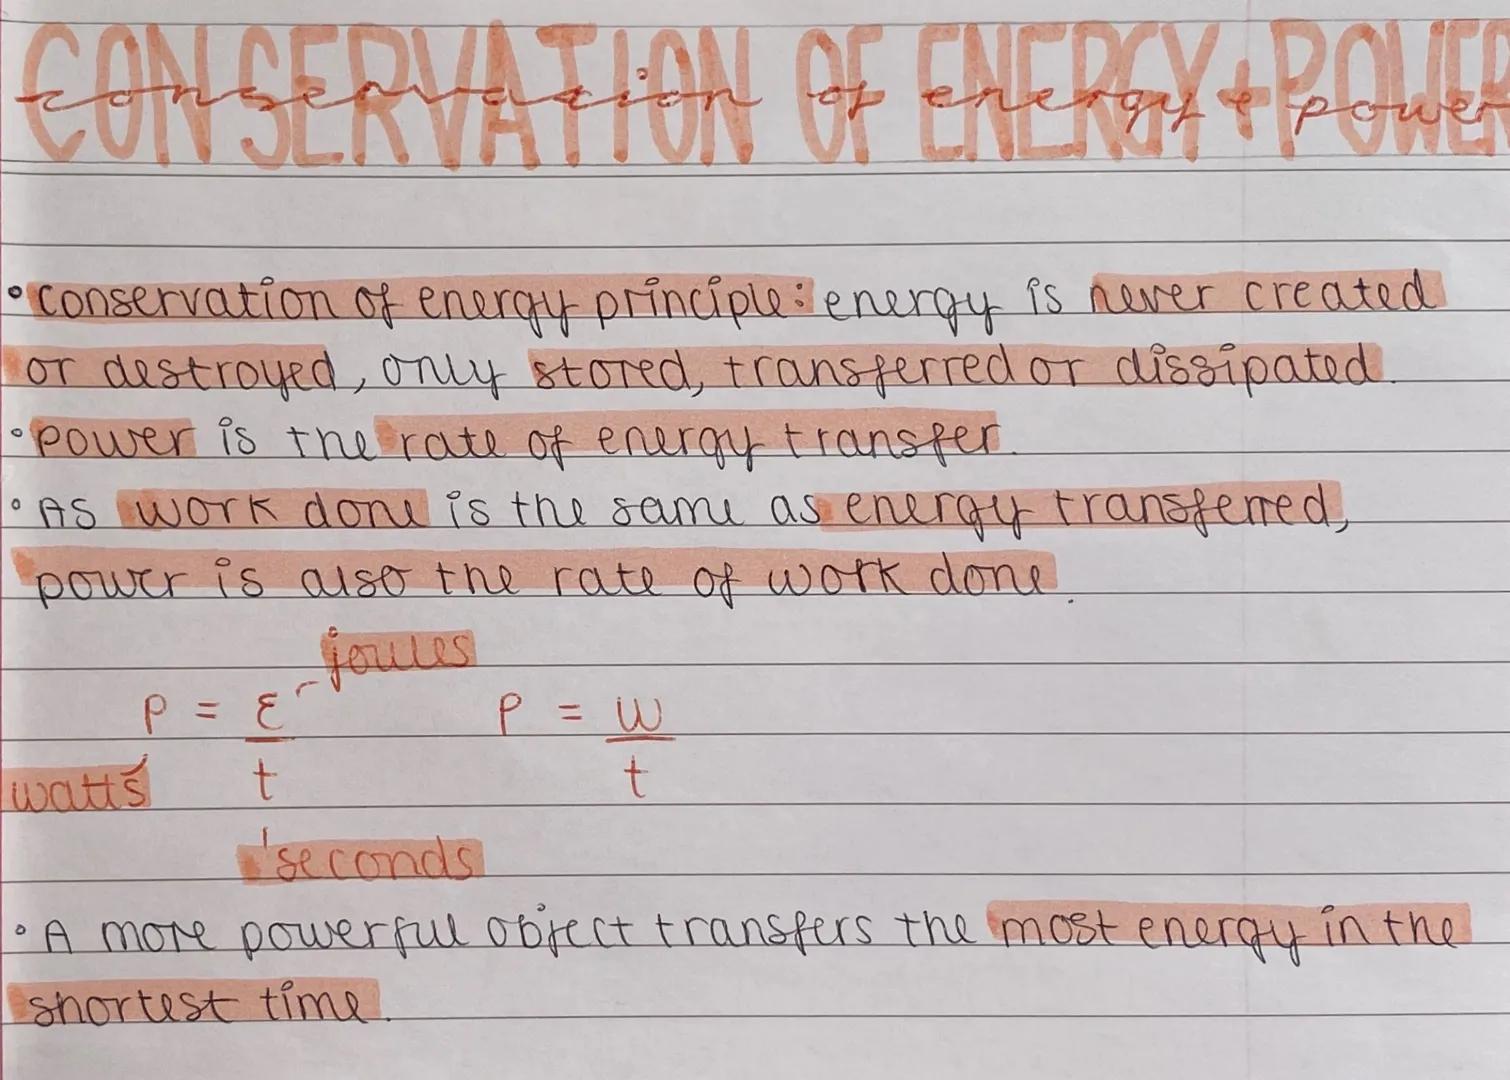 CONSERVATION OF ENERGY + POWER
conservation of energy & power
• conservation of energy principle: energy is never created
or destroyed, only stored, transferred or dissipated.
• power is the rate of energy transfer.
• As work done is the same as energy transferred,
power is also the rate of work done.
joules
P = E P = W
watts t t
seconds
• A more powerful object transfers the most energy in the
shortest time.